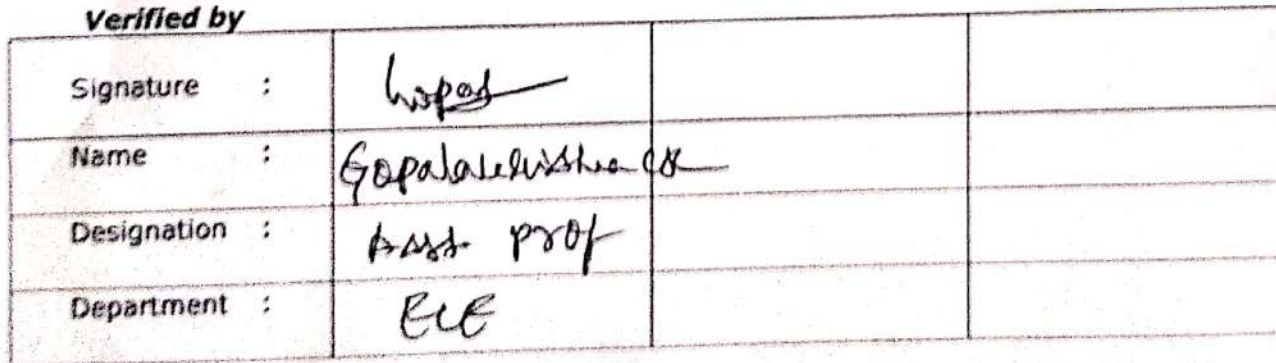 Verified by
Signature : Gopal
Name : Gopalakrishna CK
Designation : Asst prof
Department : ECE